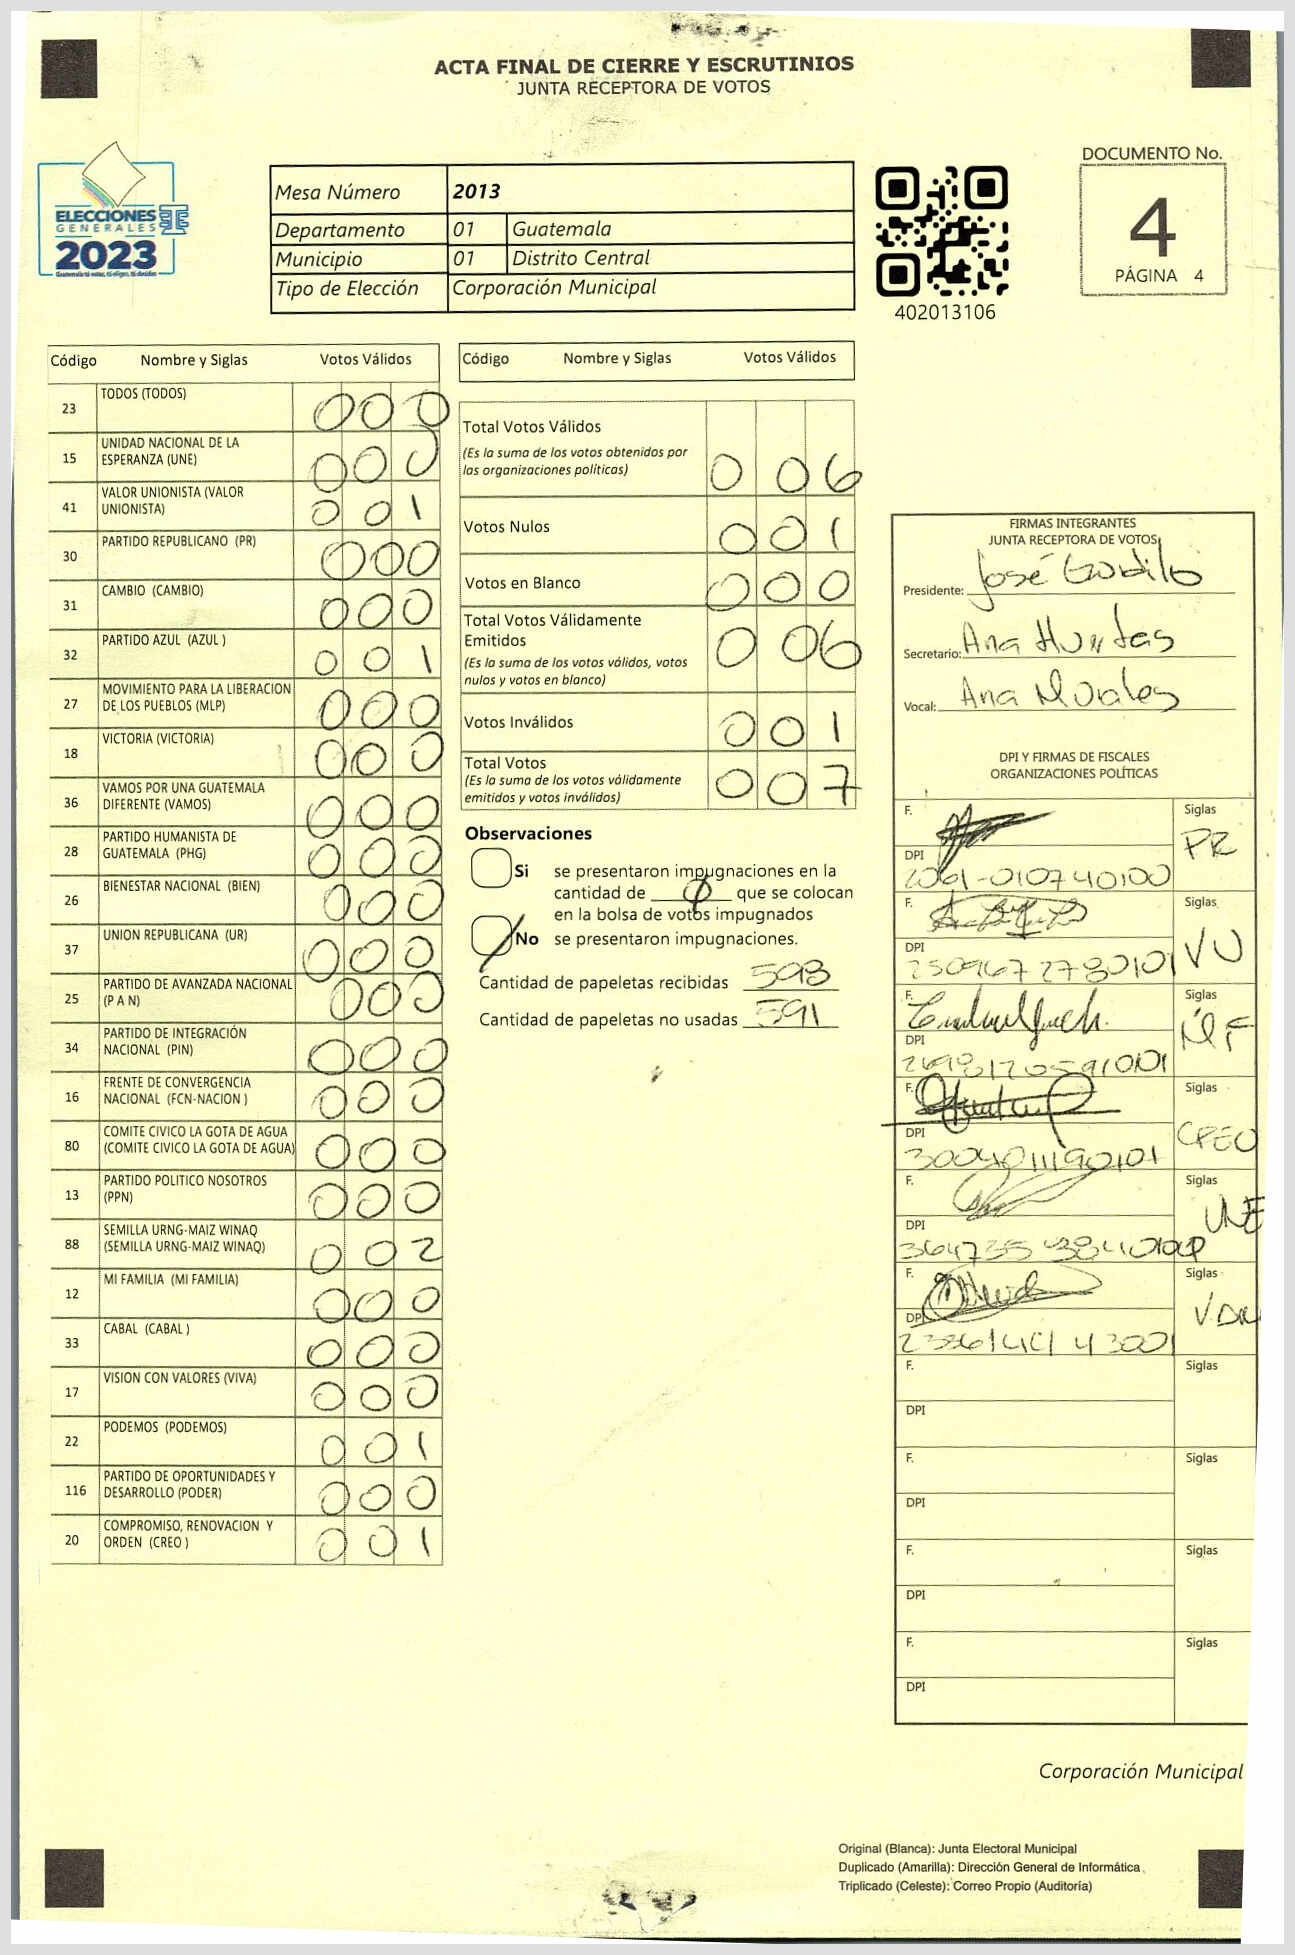 ACTA FINAL DE CIERRE Y ESCRUTINIOS
JUNTA RECEPTORA DE VOTOS
ELECCIONES
GENERALES
2023
Guatemala tú votas, tú eliges, tú decides
Mesa Número 2013
Departamento 01 Guatemala
Municipio 01 Distrito Central
Tipo de Elección Corporación Municipal
402013106
DOCUMENTO No.
4
PÁGINA 4
Código Nombre y Siglas Votos Válidos
23 TODOS (TODOS) 0 0 0
15 UNIDAD NACIONAL DE LA ESPERANZA (UNE) 0 0 0
41 VALOR UNIONISTA (VALOR UNIONISTA) 0 0 1
30 PARTIDO REPUBLICANO (PR) 0 0 0
31 CAMBIO (CAMBIO) 0 0 0
32 PARTIDO AZUL (AZUL ) 0 0 1
27 MOVIMIENTO PARA LA LIBERACION DE LOS PUEBLOS (MLP) 0 0 0
18 VICTORIA (VICTORIA) 0 0 0
36 VAMOS POR UNA GUATEMALA DIFERENTE (VAMOS) 0 0 0
28 PARTIDO HUMANISTA DE GUATEMALA (PHG) 0 0 0
26 BIENESTAR NACIONAL (BIEN) 0 0 0
37 UNION REPUBLICANA (UR) 0 0 0
25 PARTIDO DE AVANZADA NACIONAL (P A N) 0 0 0
34 PARTIDO DE INTEGRACIÓN NACIONAL (PIN) 0 0 0
16 FRENTE DE CONVERGENCIA NACIONAL (FCN-NACION ) 0 0 0
80 COMITE CIVICO LA GOTA DE AGUA (COMITE CIVICO LA GOTA DE AGUA) 0 0 0
13 PARTIDO POLITICO NOSOTROS (PPN) 0 0 0
88 SEMILLA URNG-MAIZ WINAQ (SEMILLA URNG-MAIZ WINAQ) 0 0 2
12 MI FAMILIA (MI FAMILIA) 0 0 0
33 CABAL (CABAL ) 0 0 0
17 VISION CON VALORES (VIVA) 0 0 0
22 PODEMOS (PODEMOS) 0 0 1
116 PARTIDO DE OPORTUNIDADES Y DESARROLLO (PODER) 0 0 0
20 COMPROMISO, RENOVACION Y ORDEN (CREO ) 0 0 1
Código Nombre y Siglas Votos Válidos
Total Votos Válidos 0 0 6
(Es la suma de los votos obtenidos por
las organizaciones políticas)
Votos Nulos 0 0 1
Votos en Blanco 0 0 0
Total Votos Válidamente
Emitidos 0 0 6
(Es la suma de los votos válidos, votos
nulos y votos en blanco)
Votos Inválidos 0 0 1
Total Votos 0 0 7
(Es la suma de los votos válidamente
emitidos y votos inválidos)
Observaciones
Si se presentaron impugnaciones en la
cantidad de 0 que se colocan
en la bolsa de votos impugnados
No se presentaron impugnaciones.
Cantidad de papeletas recibidas 598
Cantidad de papeletas no usadas 591
FIRMAS INTEGRANTES
JUNTA RECEPTORA DE VOTOS
Presidente: José
Secretario: Ana
Vocal: Ana
DPI Y FIRMAS DE FISCALES
ORGANIZACIONES POLÍTICAS
F. Siglas
PR
DPI
2061-010740100
F. Siglas
VU
DPI
F. Siglas
MF
DPI
F. Siglas
DPI
F. Siglas
UNE
DPI
F. Siglas
DPI
F. Siglas
DPI
F. Siglas
DPI
F. Siglas
DPI
F. Siglas
DPI
Corporación Municipal
Original (Blanca): Junta Electoral Municipal
Duplicado (Amarilla): Dirección General de Informática
Triplicado (Celeste): Correo Propio (Auditoría)